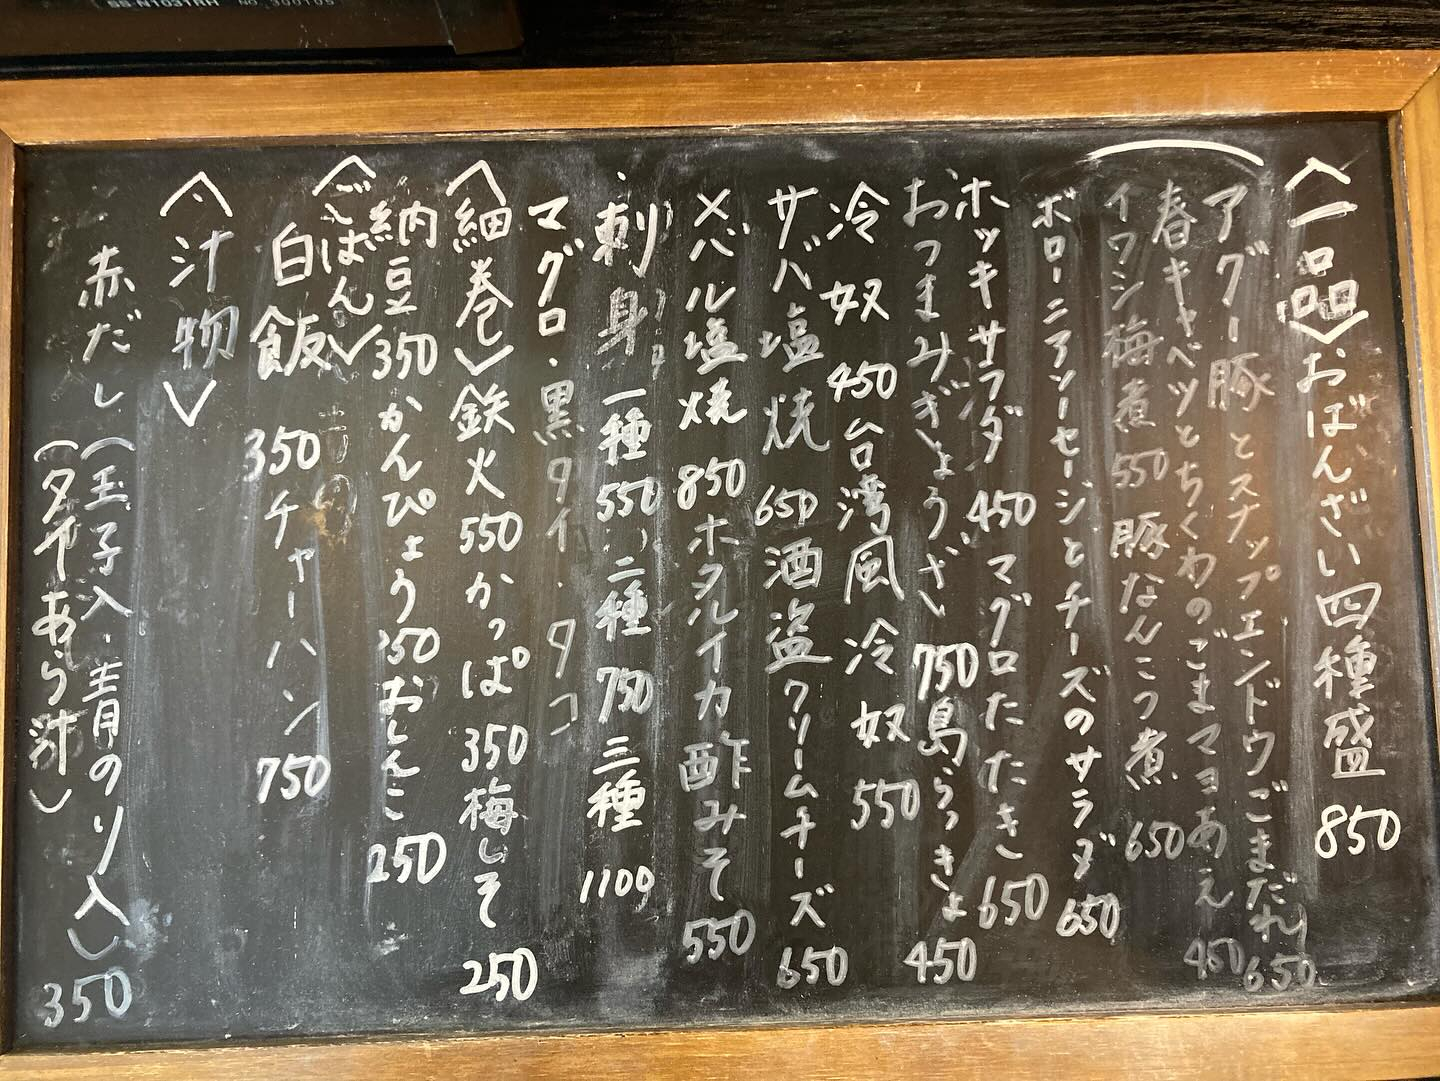 SS-N103TRH NO.300105
〈一品〉おばんざい四種盛 850
アグー豚とスナップエンドウごまだれ 650
春キャベツとちくわのごまマヨあえ 450
イワシ梅煮 550 豚なんこつ煮 650
ボローニアソーセージとチーズのサラダ 650
ホッキサラダ 450 マグロたたき 650
おつまみぎょうざ 750 島らっきょ 450
冷奴 450 台湾風冷奴 550
サバ塩焼 650 酒盗クリームチーズ 650
メバル塩焼 850 ホタルイカ酢みそ 550
刺身 一種 550 二種 750 三種 1100
マグロ・黒タイ・タコ
〈細巻〉鉄火 550 かっぱ 350 梅しそ 250
納豆 350 かんぴょう 350 おしんこ 250
〈ごはん〉
白飯 350 チャーハン 750
〈汁物〉
赤だし (玉子入・青のり入) 350
(タヤあら汁)